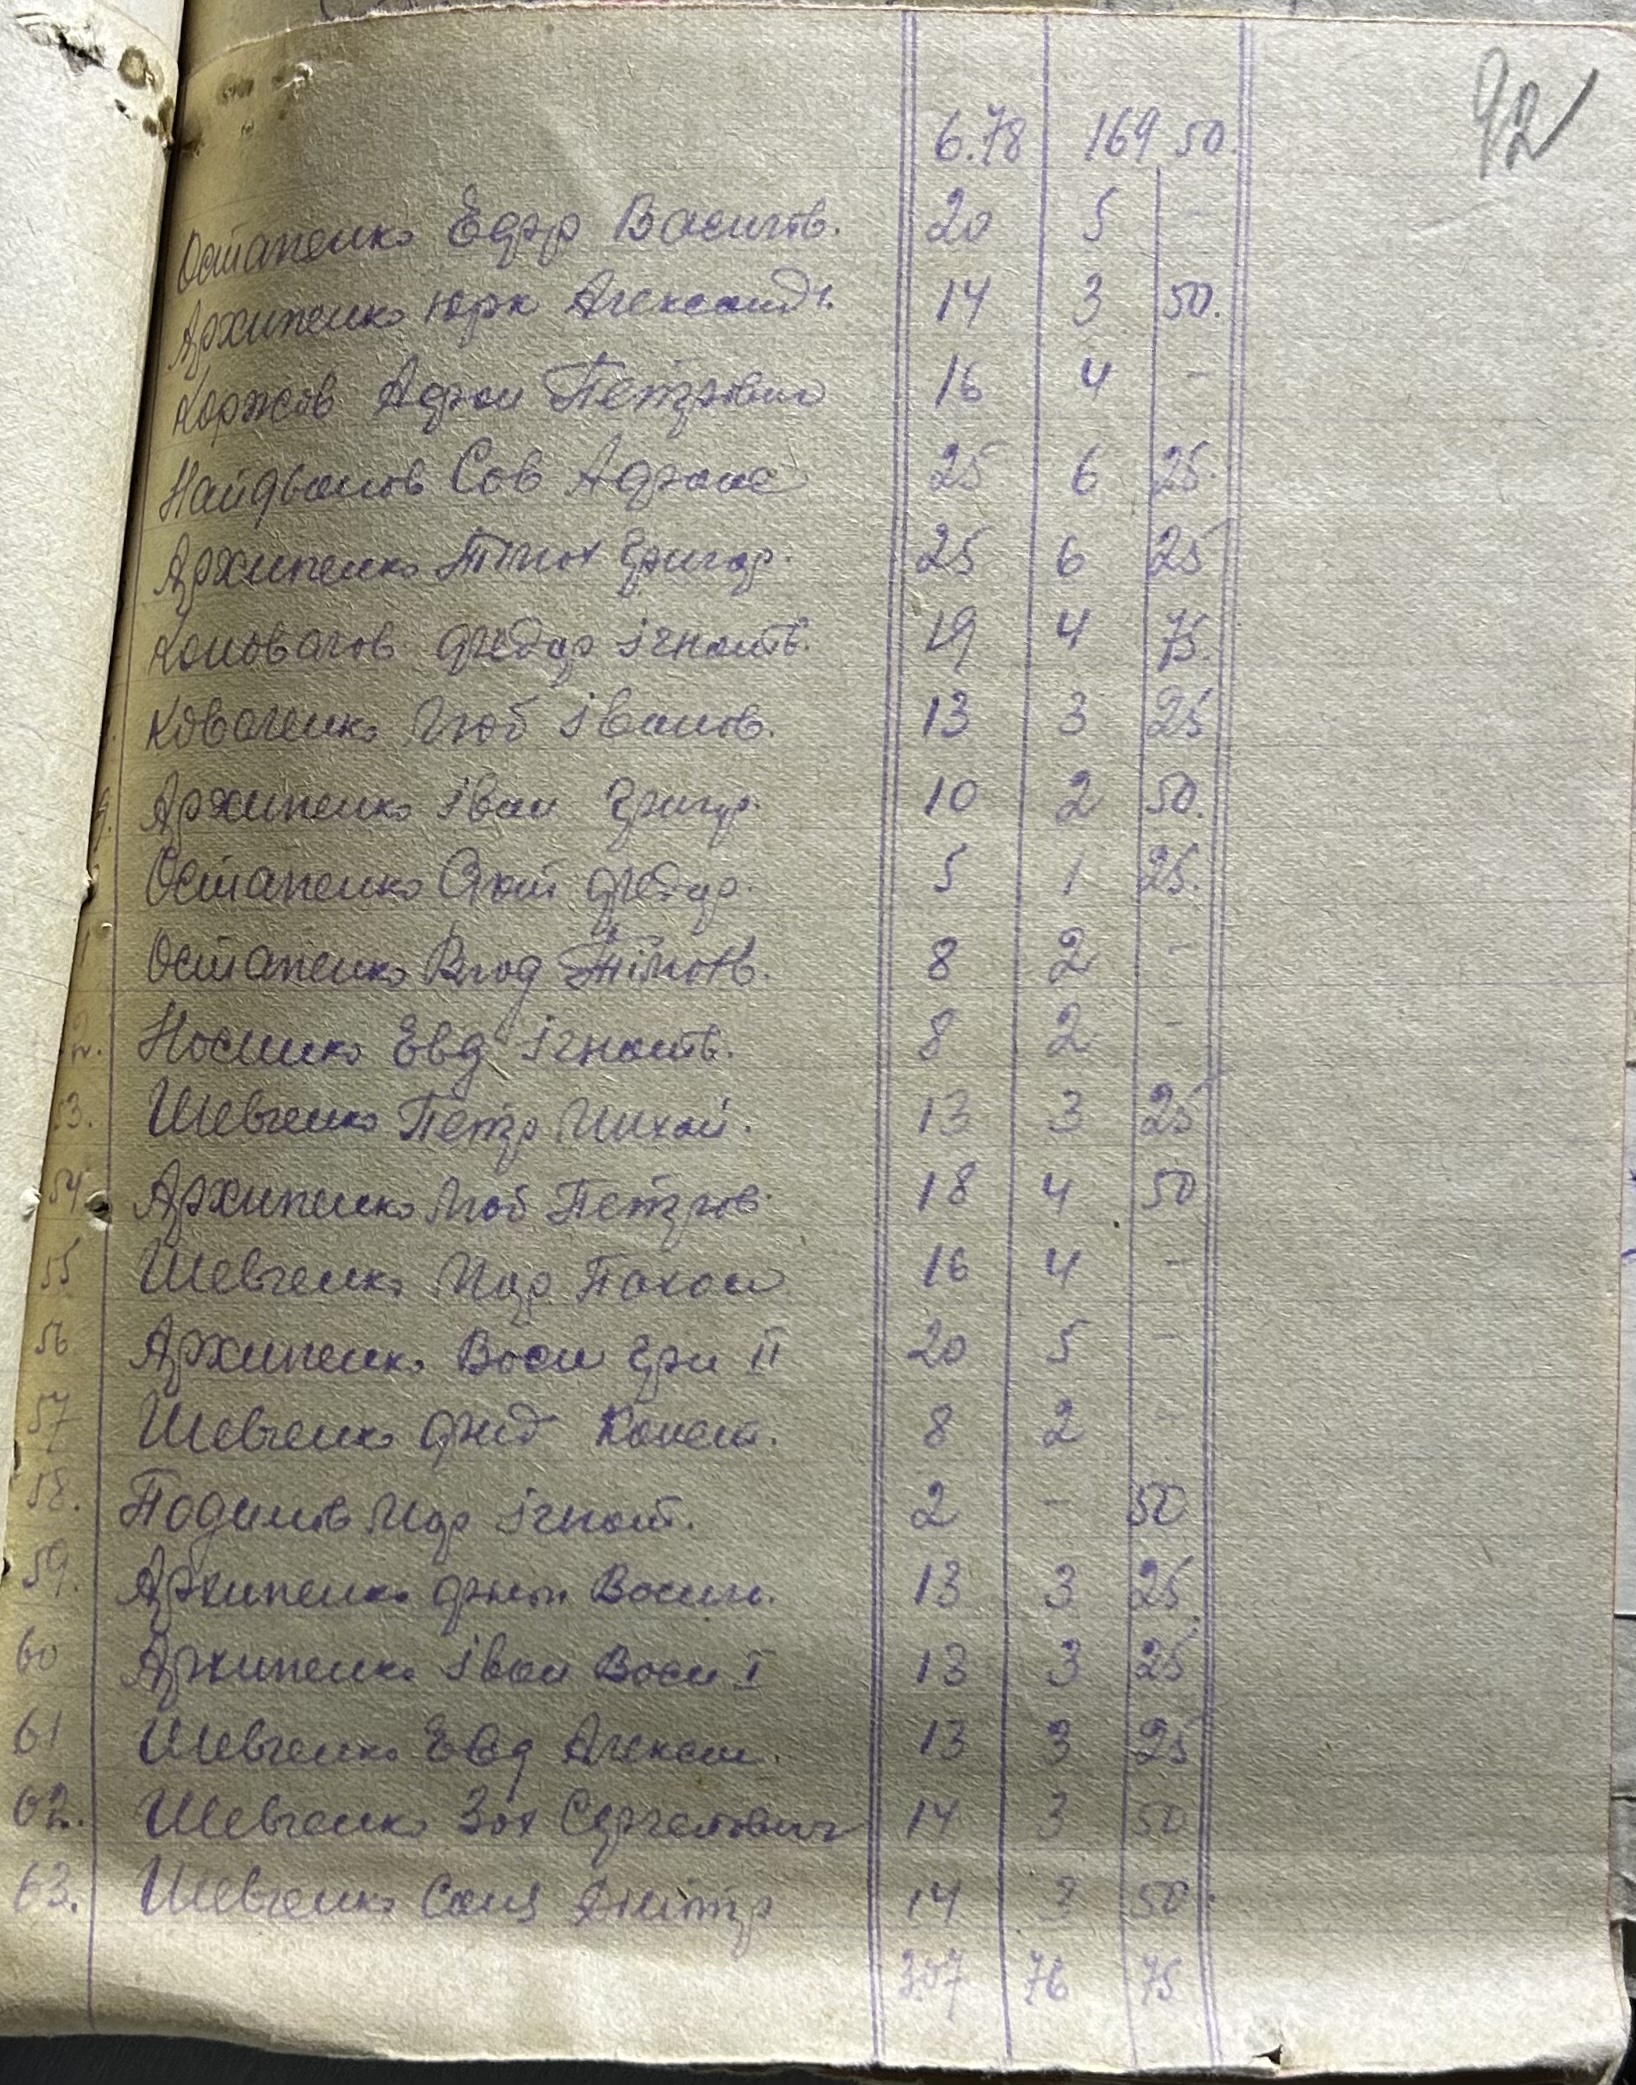 92
6.78 169 50.
Остапенко Васильов. 20 5 -
Архипенко Юрк Александ. 14 3 50.
Коржов Петрович 16 4 -
Найдьонов Сов 25 6 25.
Архипенко Тімох Григор. 25 6 25
Коновалов Федор Ігнатів. 19 4 75.
Коваленко Іванов. 13 3 25
Архипенко Іван Григор. 10 2 50.
Остапенко Федор. 5 1 25.
Остапенко Влод Тімохв. 8 2 -
2. Носенко Евд Ігнатв. 8 2 -
53. Шевченко Петр Михай. 13 3 25
54. Архипенко Петров. 18 4 50
55 Шевченко Мар 16 4 -
56 Архипенко Васи Гри II 20 5 -
57 Шевченко Конст. 8 2 -
58. Мар Ігнат. 2 - 50
59. Архипенко Васил. 13 3 25
60 Архипенко Іван Васи I 13 3 25
61 Шевченко Евд Алексан. 13 3 25
62. Шевченко Зах Сергеевич 14 3 50
63. Шевченко Дмітр 14 3 50
307 76 75